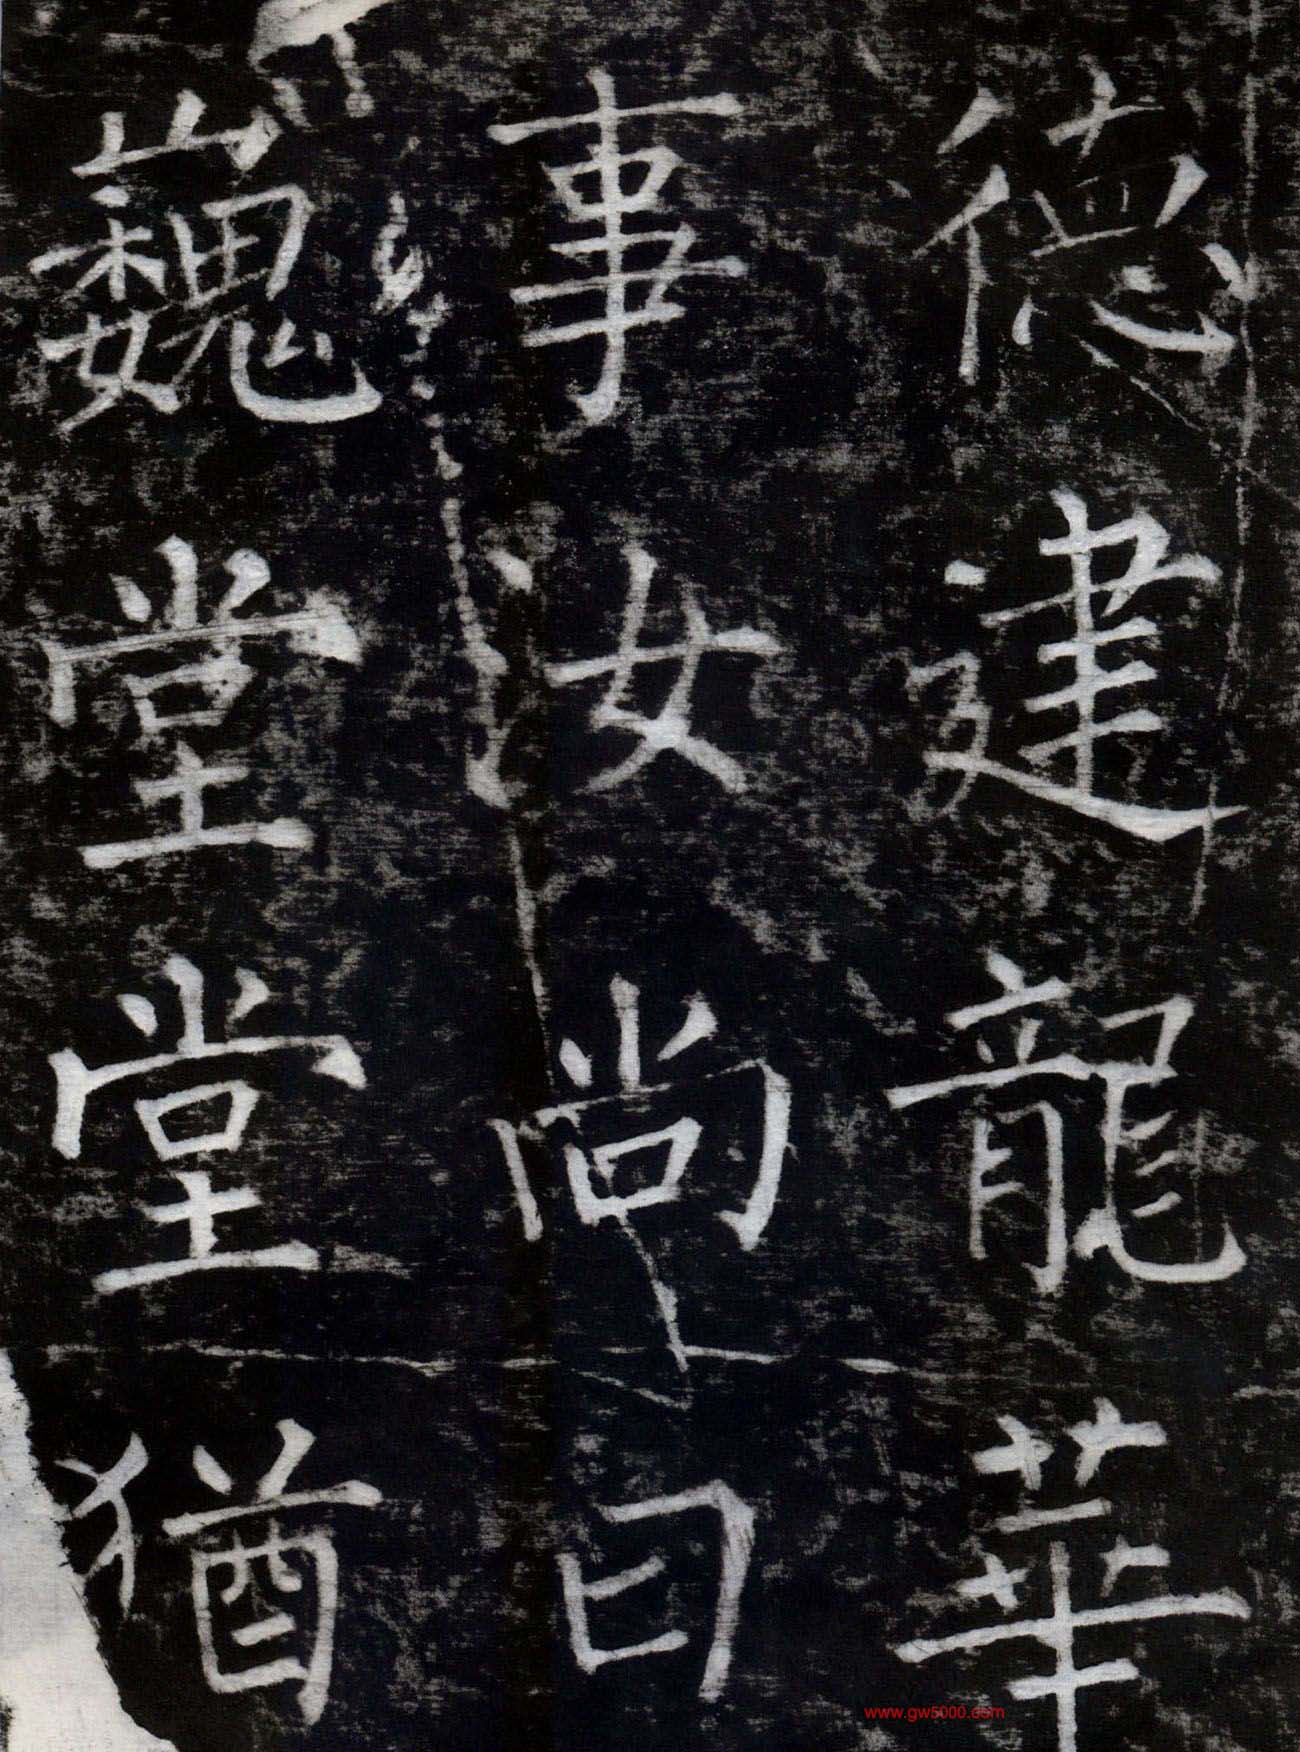 德建龍華
事汝尚曰
巍堂堂猶
www.gw5000.com